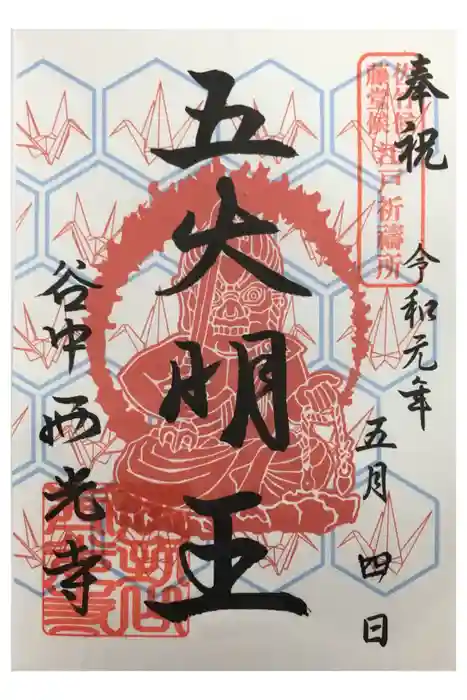 奉祝
令和元年
五月四日
藤堂候 江戸祈祷所
五大明王
谷中西光寺